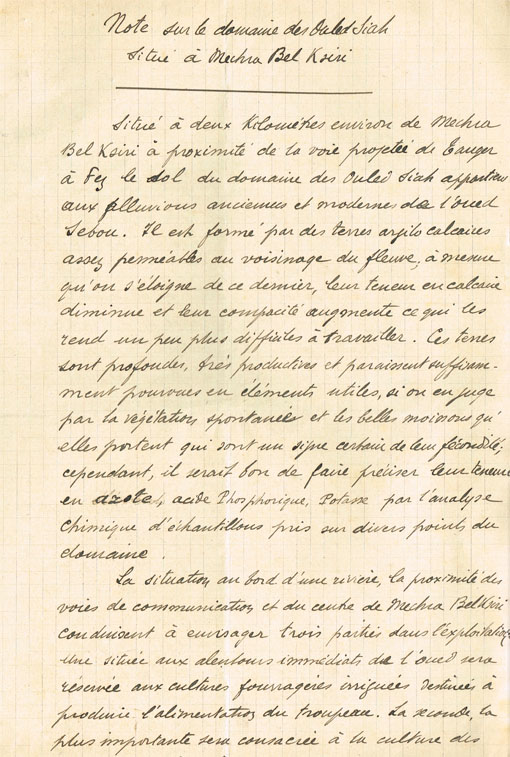 Note sur le domaine des Ouled Siah
situé à Mechra Bel Ksiri
Situé à deux Kilomètres environ de Mechra
Bel Ksiri à proximité de la voie projetée de Tanger
à Fez le sol du domaine des Ouled Siah appartient
aux alluvions anciennes et modernes de l'oued
Sebou. Il est formé par des terres argilo calcaires
assez perméables au voisinage du fleuve, à mesure
qu'on s'éloigne de ce dernier, leur teneur en calcaire
diminue et leur compacité augmente ce qui les
rend un peu plus difficiles à travailler. Ces terres
sont profondes, très productives et paraissent suffisam-
ment pourvues en éléments utiles, si on en juge
par la végétation spontanée et les belles moissons qu'
elles portent qui sont un signe certain de leur fécondité;
cependant, il serait bon de faire préciser leur teneur
en azote, acide Phosphorique, Potasse par l'analyse
chimique d'échantillons pris sur divers points du
domaine.
La situation au bord d'une rivière, la proximité des
voies de communication et du centre de Mechra Bel Ksiri
conduisent à envisager trois parties dans l'exploitation
une située aux alentours immédiats de l'oued sera
réservée aux cultures fourragères irriguées destinées à
produire l'alimentation du troupeau. La seconde, la
plus importante sera consacrée à la culture des